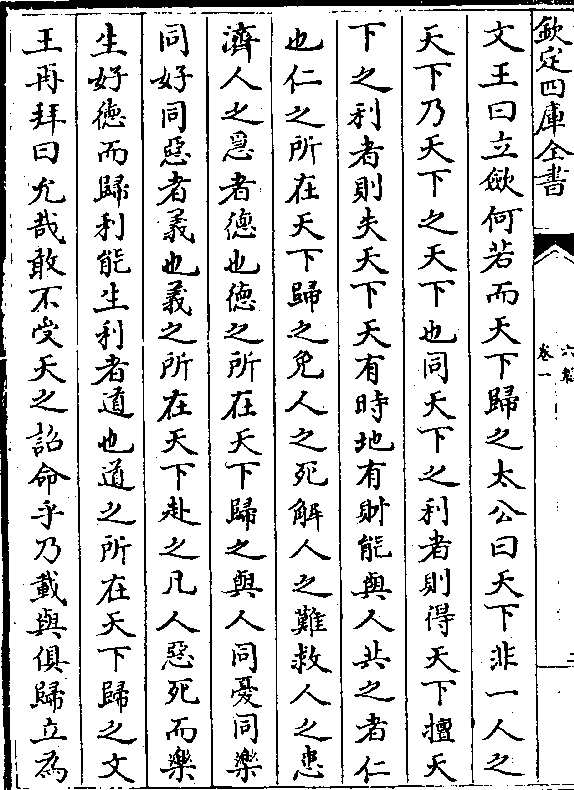 欽定四庫全書
六韜
卷一
文王曰立歛何若而天下歸之太公曰天下非一人之
天下乃天下之天下也同天下之利者則得天下擅天
下之利者則失天下天有時地有財能與人共之者仁
也仁之所在天下歸之免人之死解人之難救人之患
濟人之急者德也德之所在天下歸之與人同憂同樂
同好同惡者義也義之所在天下赴之凡人惡死而樂
生好德而歸利能生利者道也道之所在天下歸之文
王再拜曰允哉敢不受天之詔命乎乃載與俱歸立為